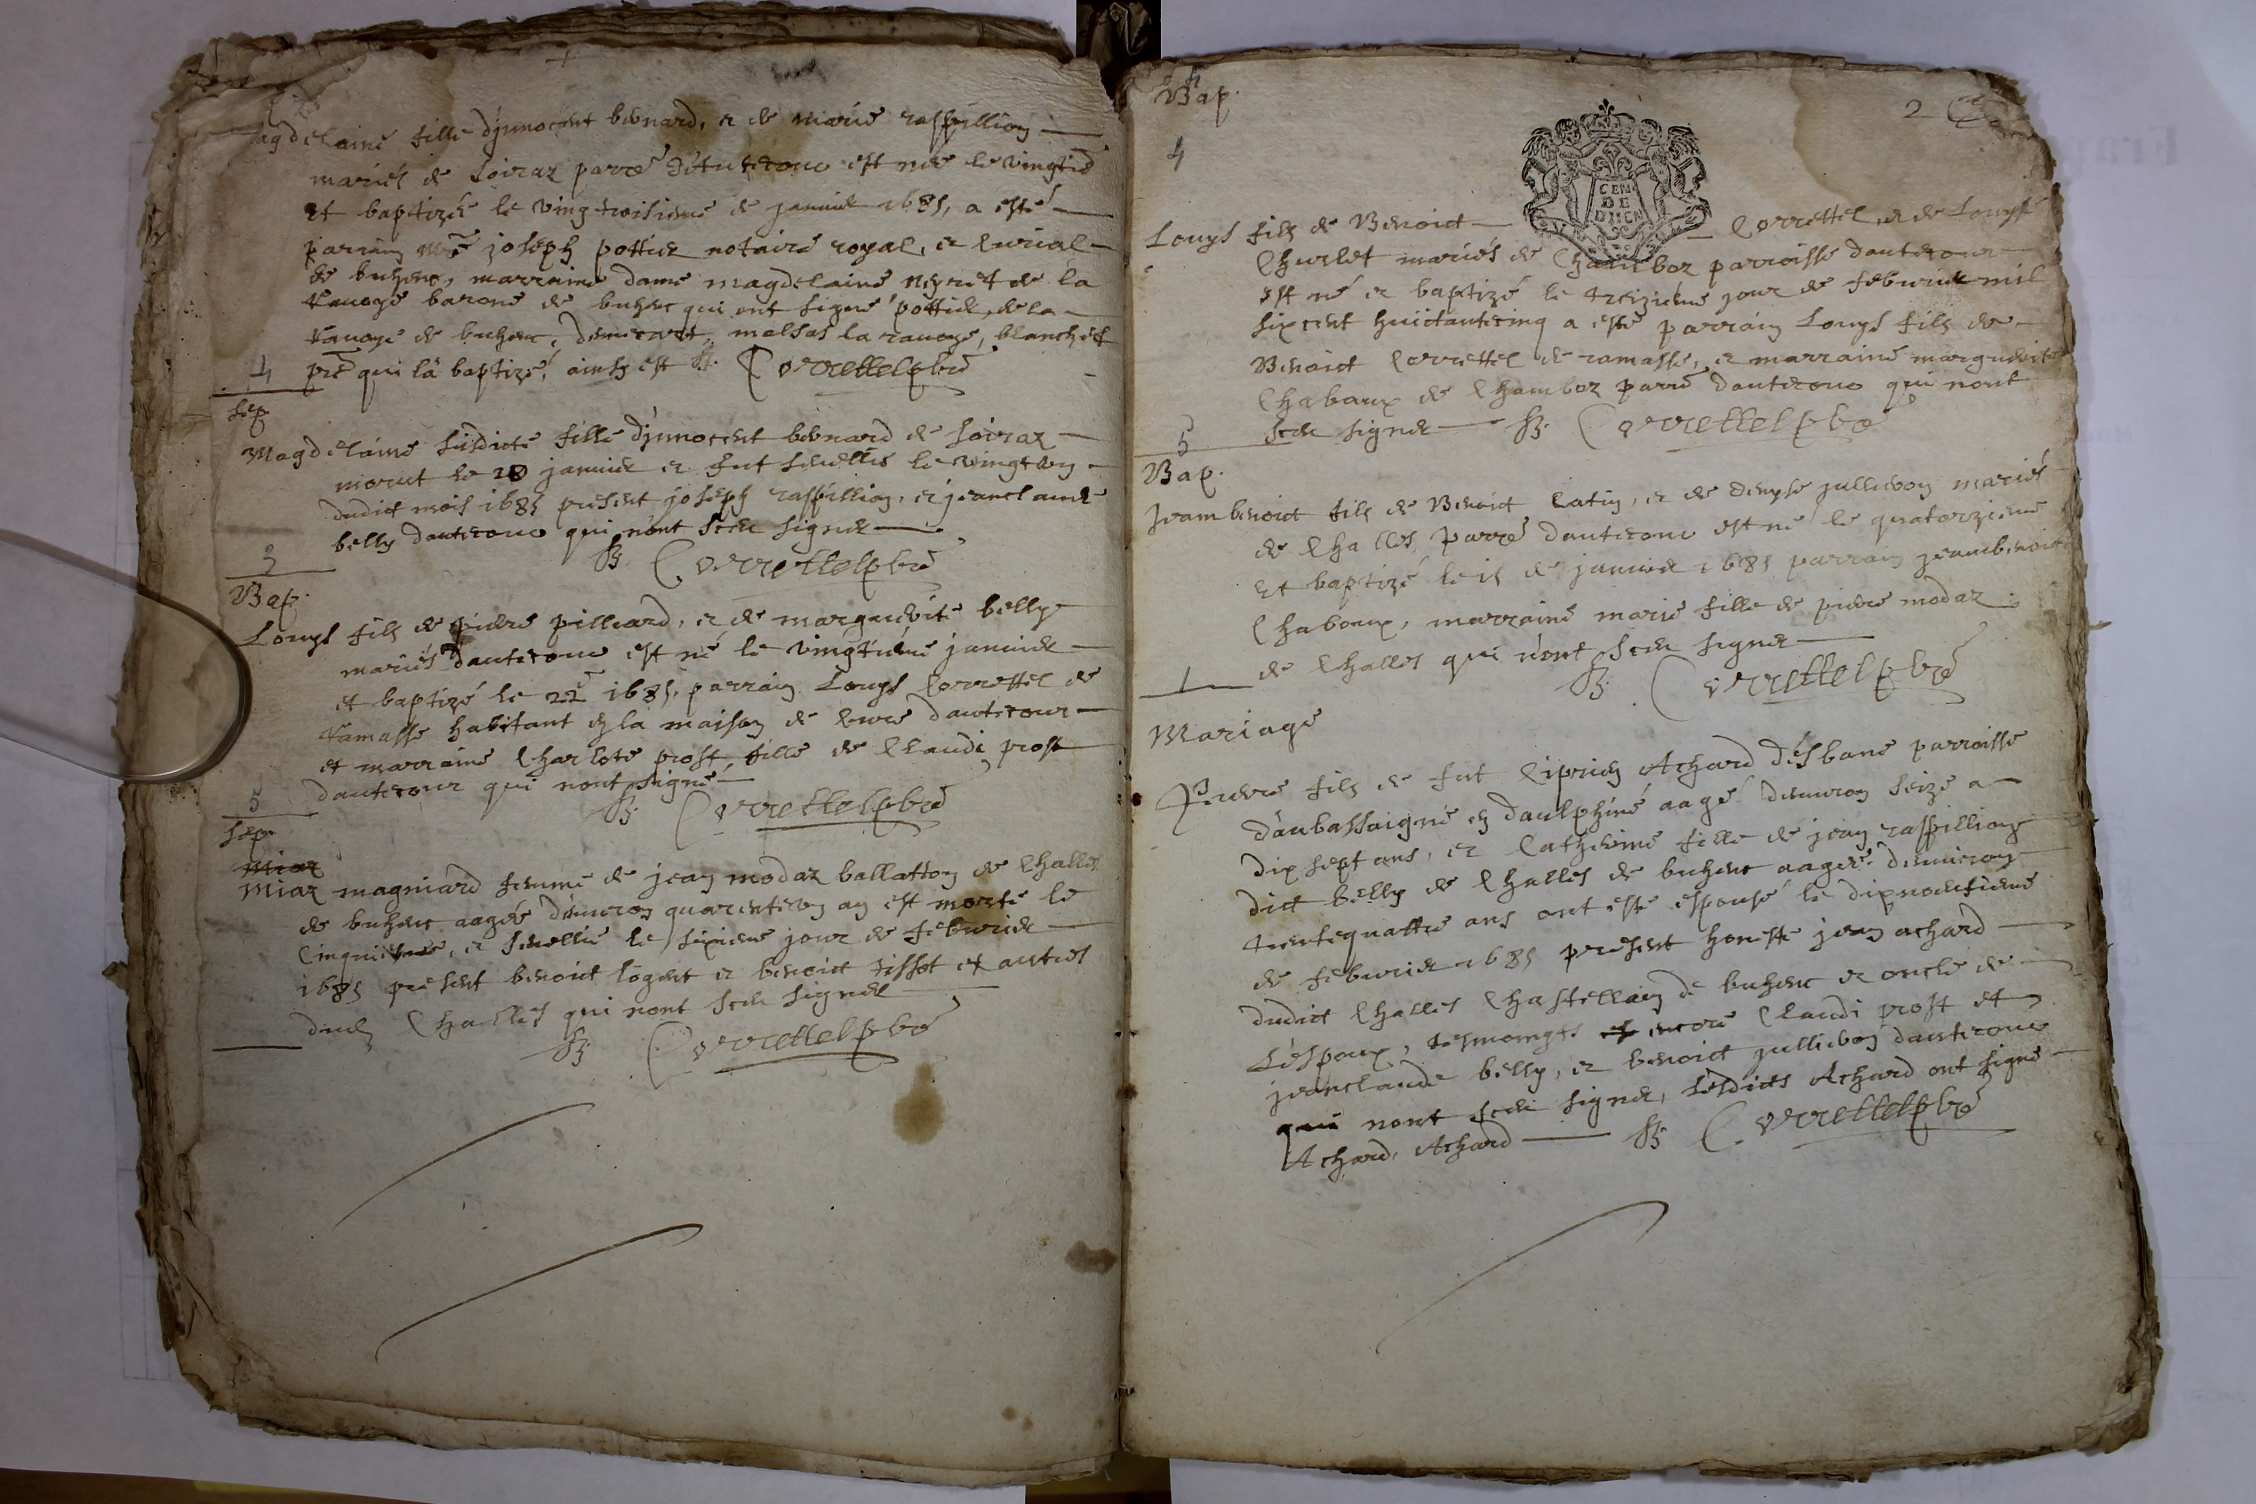 agdelaine fille djnnocent benard, et de marie raspillion
mariés de Soiraz parre d'Autecour est née le vingtie
et baptizée le vingtroisieme de januier 1685, a esté
parrain Mre joseph pottier notaire royal, et Curial
de buhenc, marraine dame magdelaine Neyret de la
rauoye barone de buhenc qui ont signé pottier, de la
rauoye de buhenc, blanchet
pre qui l'a baptizé, ainsy est Correttel pbre
4
sep
Magdelaine susdicte fille d'jnnocent benard de Soiraz
morut le 20 januier et fut seuellie le vingtvn
dudict mois 1685 present joseph raspillion, et jeanclaude
belly dautecour qui n'ont sceu signer
Correttel pbre
3
Bap.
Louys fils de pierre pilliard, et de marguerite belly
mariés dautecour est né le vingtieme januier
et baptizé le 22e 1685, parrain Louys Correttel de
ramasse habitant en la maison de Cure dautecour
et marraine Charlote prost, fille de Claudi prost
dautecour qui nont signé
Correttel pbre
5
sep
Miaz
Miaz magniard femme de jean modaz ballatton de Challes
de buhenc aagée d'enuiron quarentevn an est morte le
Cinquieme, et seuellie le sixieme jour de feburier
1685 present benoict logent et benoict tissot et autres
dud Challes qui nont sceu signer
Correttel pbre
Bap.
2
4
CEN
DE
DIICN
Louys fils de Benoict Correttel, et de Louyse
Churlet mariés de Chamboz parroisse dautecour
est né et baptizé le treizieme jour de feburier mil
sixcent huictantecinq a esté parrain Louys fils de
Benoict Correttel de ramasse, et marraine marguerite
Chabaux de Chamboz parre dautecour qui nont
sceu signer Correttel pbre
5
Bap.
Jeanbenoict fils de Benoict Catin, et de denyse jullieron mariés
de Challes parre dautecour est né le quatorzieme
et baptizé le 15 de januier 1685 parrain jeanbenoict
Chaboux, marraine marie fille de pierre modaz
de Challes qui n'ont sceu signer
Correttel pbre
1
Mariage
Pierre fils de fut Ciprien Achard d'esbane parroisse
daubassaigne en daulphiné aagé denuiron seize a
dix sept ans, et Catherine fille de jean raspilliong
dict belly de Challes de buhenc aagée denuiron
trentequattre ans ont esté espousé le dixneufieme
de feburier 1685 present honeste jean achard
dudict Challes Chastellain de buhenc et oncle de
L'espoux, tesmoingts et encore Claudi prost et
jeanclaude belly, et benoict jullieron dautecour
qui nont sceu signer, lesdicts Achard ont signé
Achard, Achard Correttel pbre